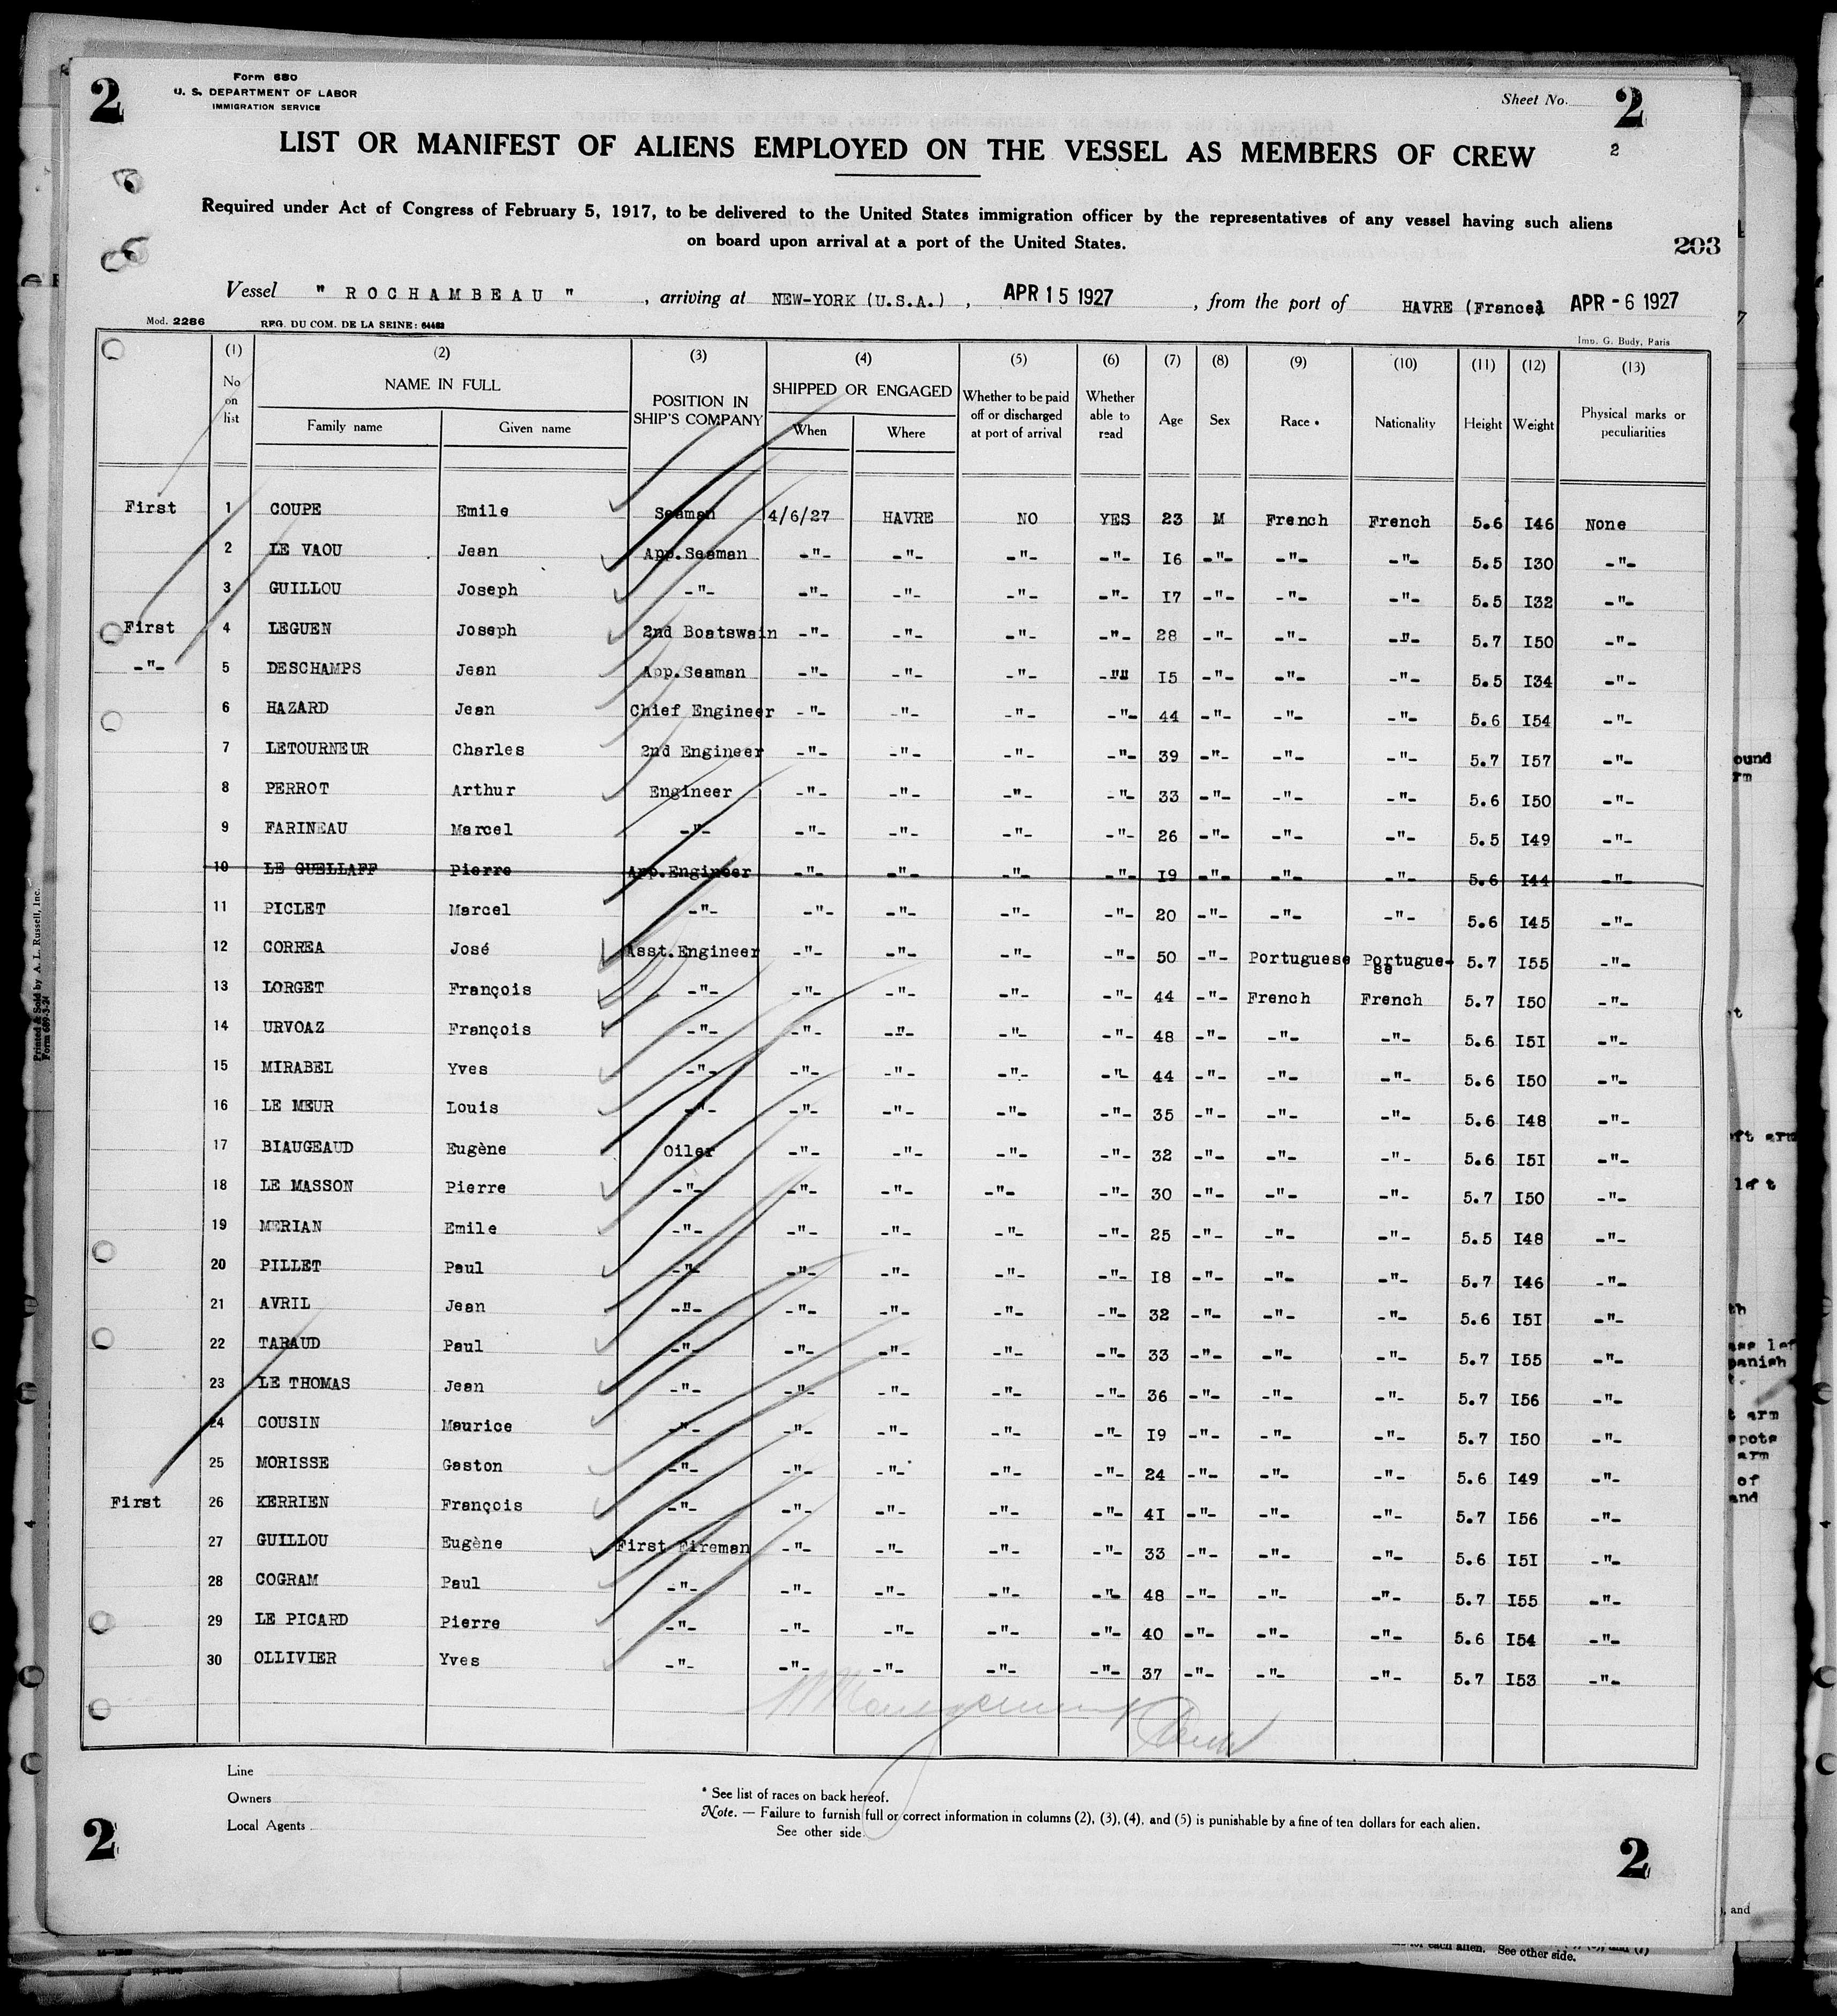 2
Form 680
U. S. DEPARTMENT OF LABOR
IMMIGRATION SERVICE
Sheet No. 2
2
LIST OR MANIFEST OF ALIENS EMPLOYED ON THE VESSEL AS MEMBERS OF CREW
Required under Act of Congress of February 5, 1917, to be delivered to the United States immigration officer by the representatives of any vessel having such aliens
on board upon arrival at a port of the United States.
203
Vessel " ROCHAMBEAU " , arriving at NEW-YORK (U.S.A.) , APR 15 1927 , from the port of HAVRE (France) APR - 6 1927
Mod. 2286 REG. DU COM. DE LA SEINE: 64462
Imp. G. Budy, Paris
(1) (2) (3) (4) (5) (6) (7) (8) (9) (10) (11) (12) (13)
No on list NAME IN FULL Family name Given name POSITION IN SHIP'S COMPANY SHIPPED OR ENGAGED When Where Whether to be paid off or discharged at port of arrival Whether able to read Age Sex Race * Nationality Height Weight Physical marks or peculiarities
First 1 COUPE Emile Seaman 4/6/27 HAVRE NO YES 23 M French French 5.6 I46 None
2 LE VAOU Jean App.Seaman -"- -"- -"- -"- I6 -"- -"- -"- 5.5 I30 -"-
3 GUILLOU Joseph -"- -"- -"- -"- -"- I7 -"- -"- -"- 5.5 I32 -"-
First 4 LEGUEN Joseph 2nd Boatswain -"- -"- -"- -"- 28 -"- -"- -"- 5.7 I50 -"-
-"- 5 DESCHAMPS Jean App.Seaman -"- -"- -"- -"" I5 -"- -"- -"- 5.5 I34 -"-
6 HAZARD Jean Chief Engineer -"- -"- -"- -"- 44 -"- -"- -"- 5.6 I54 -"-
7 LETOURNEUR Charles 2nd Engineer -"- -"- -"- -"- 39 -"- -"- -"- 5.7 I57 -"-
8 PERROT Arthur Engineer -"- -"- -"- -"- 33 -"- -"- -"- 5.6 I50 -"-
9 FARINEAU Marcel -"- -"- -"- -"- -"- 26 -"- -"- -"- 5.5 I49 -"-
10 LE GUELLAFF Pierre App.Engineer -"- -"- -"- -"- I9 -"- -"- -"- 5.6 I44 -"-
11 PICLET Marcel -"- -"- -"- -"- -"- 20 -"- -"- -"- 5.6 I45 -"-
12 CORREA José Asst.Engineer -"- -"- -"- -"- 50 -"- Portuguese Portugue-se 5.7 I55 -"-
13 LORGET François -"- -"- -"- -"- -"- 44 -"- French French 5.7 I50 -"-
14 URVOAZ François -"- -"- -"- -"- -"- 48 -"- -"- -"- 5.6 I5I -"-
15 MIRABEL Yves -"- -"- -"- -"- -"- 44 -"- -"- -"- 5.6 I50 -"-
16 LE MEUR Louis -"- -"- -"- -"- -"- 35 -"- -"- -"- 5.6 I48 -"-
17 BIAUGEAUD Eugène Oiler -"- -"- -"- -"- 32 -"- -"- -"- 5.6 I5I -"-
18 LE MASSON Pierre -"- -"- -"- -"- -"- 30 -"- -"- -"- 5.7 I50 -"-
19 MERIAN Emile -"- -"- -"- -"- -"- 25 -"- -"- -"- 5.5 I48 -"-
20 PILLET Paul -"- -"- -"- -"- -"- I8 -"- -"- -"- 5.7 I46 -"-
21 AVRIL Jean -"- -"- -"- -"- -"- 32 -"- -"- -"- 5.6 I5I -"-
22 TABAUD Paul -"- -"- -"- -"- -"- 33 -"- -"- -"- 5.7 I55 -"-
23 LE THOMAS Jean -"- -"- -"- -"- -"- 36 -"- -"- -"- 5.7 I56 -"-
24 COUSIN Maurice -"- -"- -"- -"- -"- I9 -"- -"- -"- 5.7 I50 -"-
25 MORISSE Gaston -"- -"- -"- -"- -"- 24 -"- -"- -"- 5.6 I49 -"-
First 26 KERRIEN François -"- -"- -"- -"- -"- 4I -"- -"- -"- 5.7 I56 -"-
27 GUILLOU Eugène First Fireman -"- -"- -"- -"- 33 -"- -"- -"- 5.6 I5I -"-
28 COGRAM Paul -"- -"- -"- -"- -"- 48 -"- -"- -"- 5.7 I55 -"-
29 LE PICARD Pierre -"- -"- -"- -"- -"- 40 -"- -"- -"- 5.6 I54 -"-
30 OLLIVIER Yves -"- -"- -"- -"- -"- 37 -"- -"- -"- 5.7 I53 -"-
Line
Owners
Local Agents
* See list of races on back hereof.
Note. — Failure to furnish full or correct information in columns (2), (3), (4), and (5) is punishable by a fine of ten dollars for each alien.
See other side
2
2
Printed & Sold by A. L. Russell, Inc.
Form 689-3-24
ound
rm
left
arm
of
and
, and
for each alien. See other side.